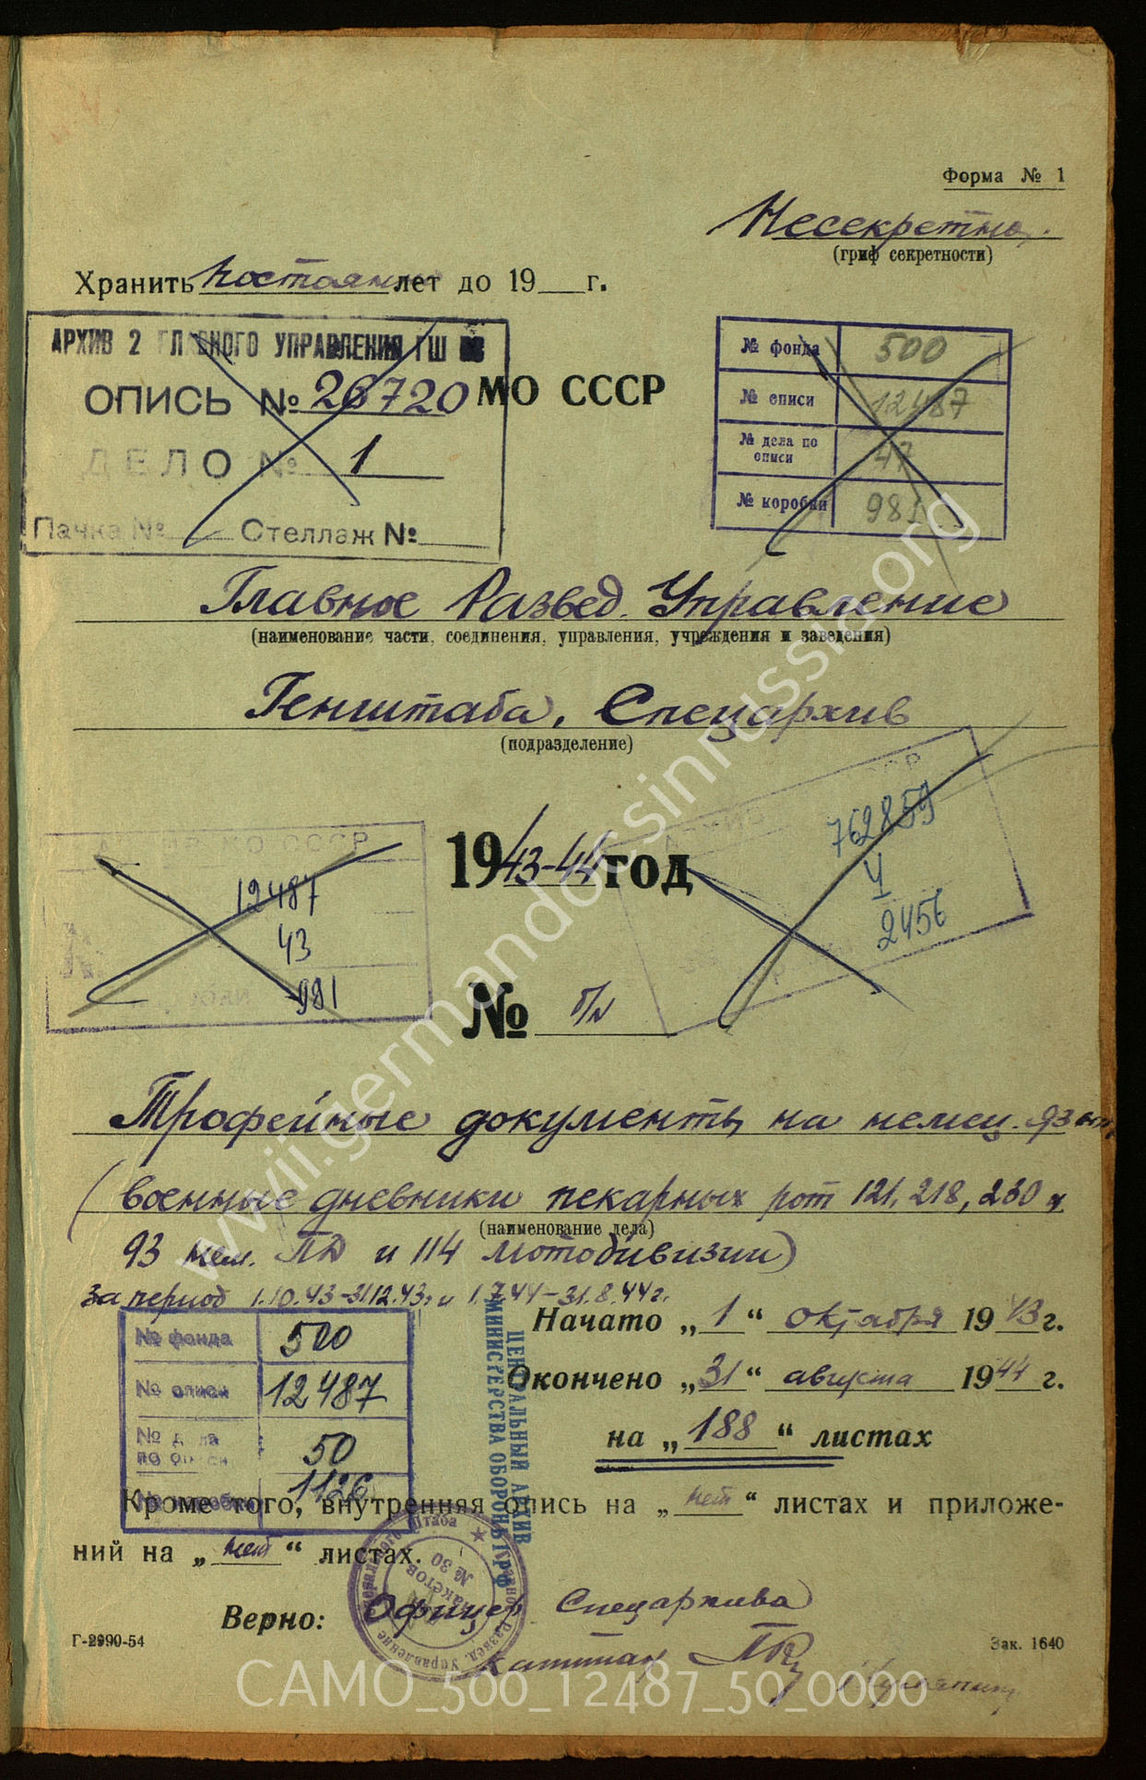 Форма № 1
Несекретно.
(гриф секретности)
Хранить постоян лет до 19 г.
АРХИВ 2 ГЛАВНОГО УПРАВЛЕНИЯ ГШ
ОПИСЬ № 26720
МО СССР
ДЕЛО № 1
Пачка № Стеллаж №
№ фонда 500
№ описи 12487
№ дела по описи 47
№ коробки 981
Главное Развед. Управление
(наименование части, соединения, управления, учреждения и заведения)
Генштаба, Спецархив
(подразделение)
МО СССР
12487
43
981
1943-44 год
АРХИВ
762859
4
2456
№ б/н
Трофейные документы на немец. языке
(военные дневники пекарных рот 121, 218, 230 и
(наименование дела)
93 нем. ПД и 114 мотодивизии)
за период 1.10.43-31.12.43г и 1.7.44-31.8.44г.
Начато „1“ октября 1943г.
Окончено „31“ августа 1944 г.
на „188“ листах
№ фонда 500
№ описи 12487
№ дела по описи 50
№ коробки 1126
ЦЕНТРАЛЬНЫЙ АРХИВ
МИНИСТЕРСТВА ОБОРОНЫ РФ
Кроме того, внутренняя опись на „нет“ листах и приложе-
ний на „нет“ листах.
Главное Развед. Управление Генерального Штаба
Для пакетов
№ 30
Верно: Офицер Спецархива
капитан
Г-2990-54
Зак. 1640
wwii.germandocsinrussia.org
CAMO_500_12487_50_0000